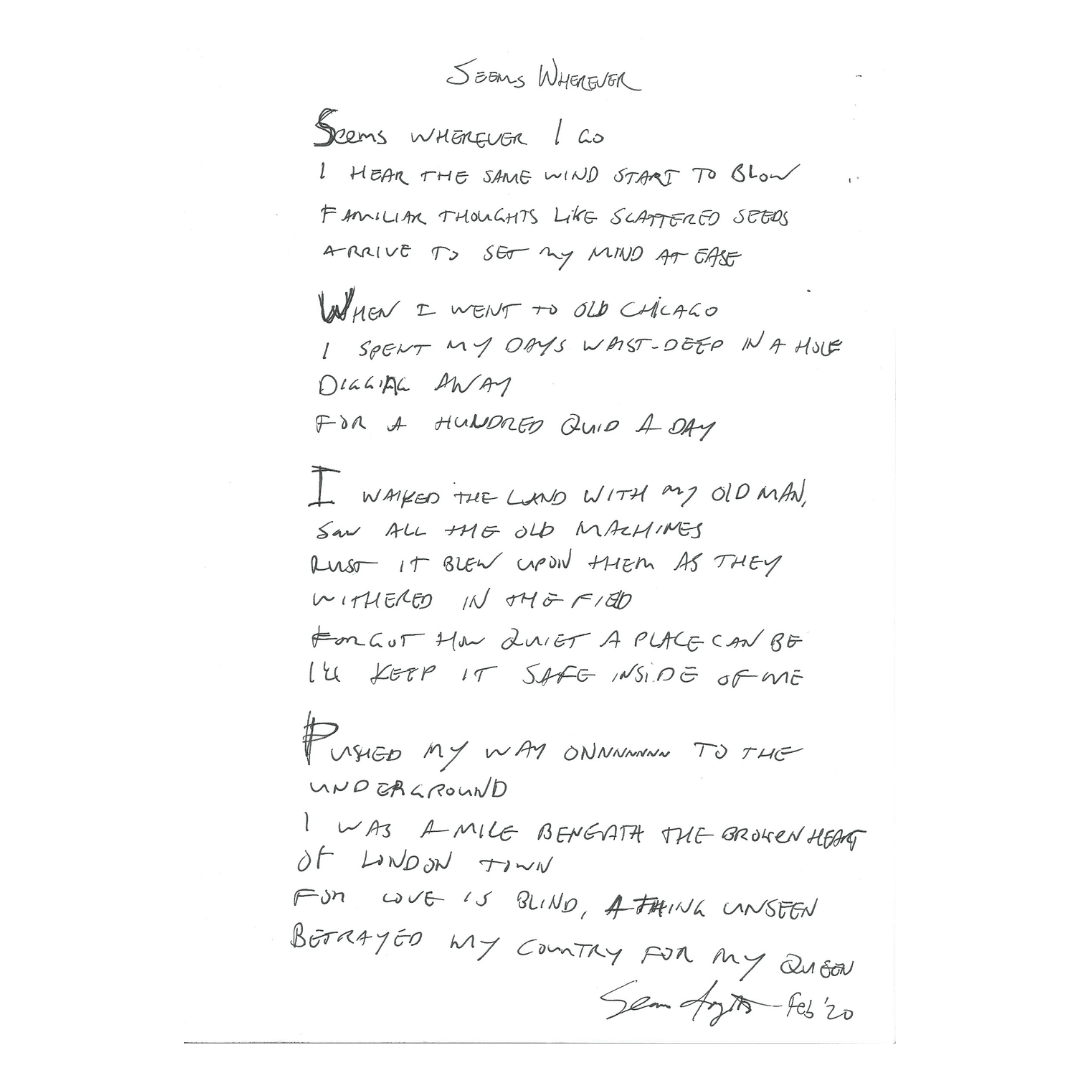 SEEMS WHEREVER
SEEMS WHEREVER I GO
I HEAR THE SAME WIND START TO BLOW
FAMILIAR THOUGHTS LIKE SCATTERED SEEDS
ARRIVE TO SET MY MIND AT EASE
WHEN I WENT TO OLD CHICAGO
I SPENT MY DAYS WAIST-DEEP IN A HOLE
DIGGING AWAY
FOR A HUNDRED QUID A DAY
I WALKED THE LAND WITH MY OLD MAN,
SAW ALL THE OLD MACHINES
RUST IT BLEW UPON THEM AS THEY
WITHERED IN THE FIELD
FORGOT HOW QUIET A PLACE CAN BE
I'LL KEEP IT SAFE INSIDE OF ME
PUSHED MY WAY ONNNNNNN TO THE
UNDERGROUND
I WAS A MILE BENEATH THE BROKEN HEART
OF LONDON TOWN
FOR LOVE IS BLIND, A THING UNSEEN
BETRAYED MY COUNTRY FOR MY QUEEN
Sean Feb '20